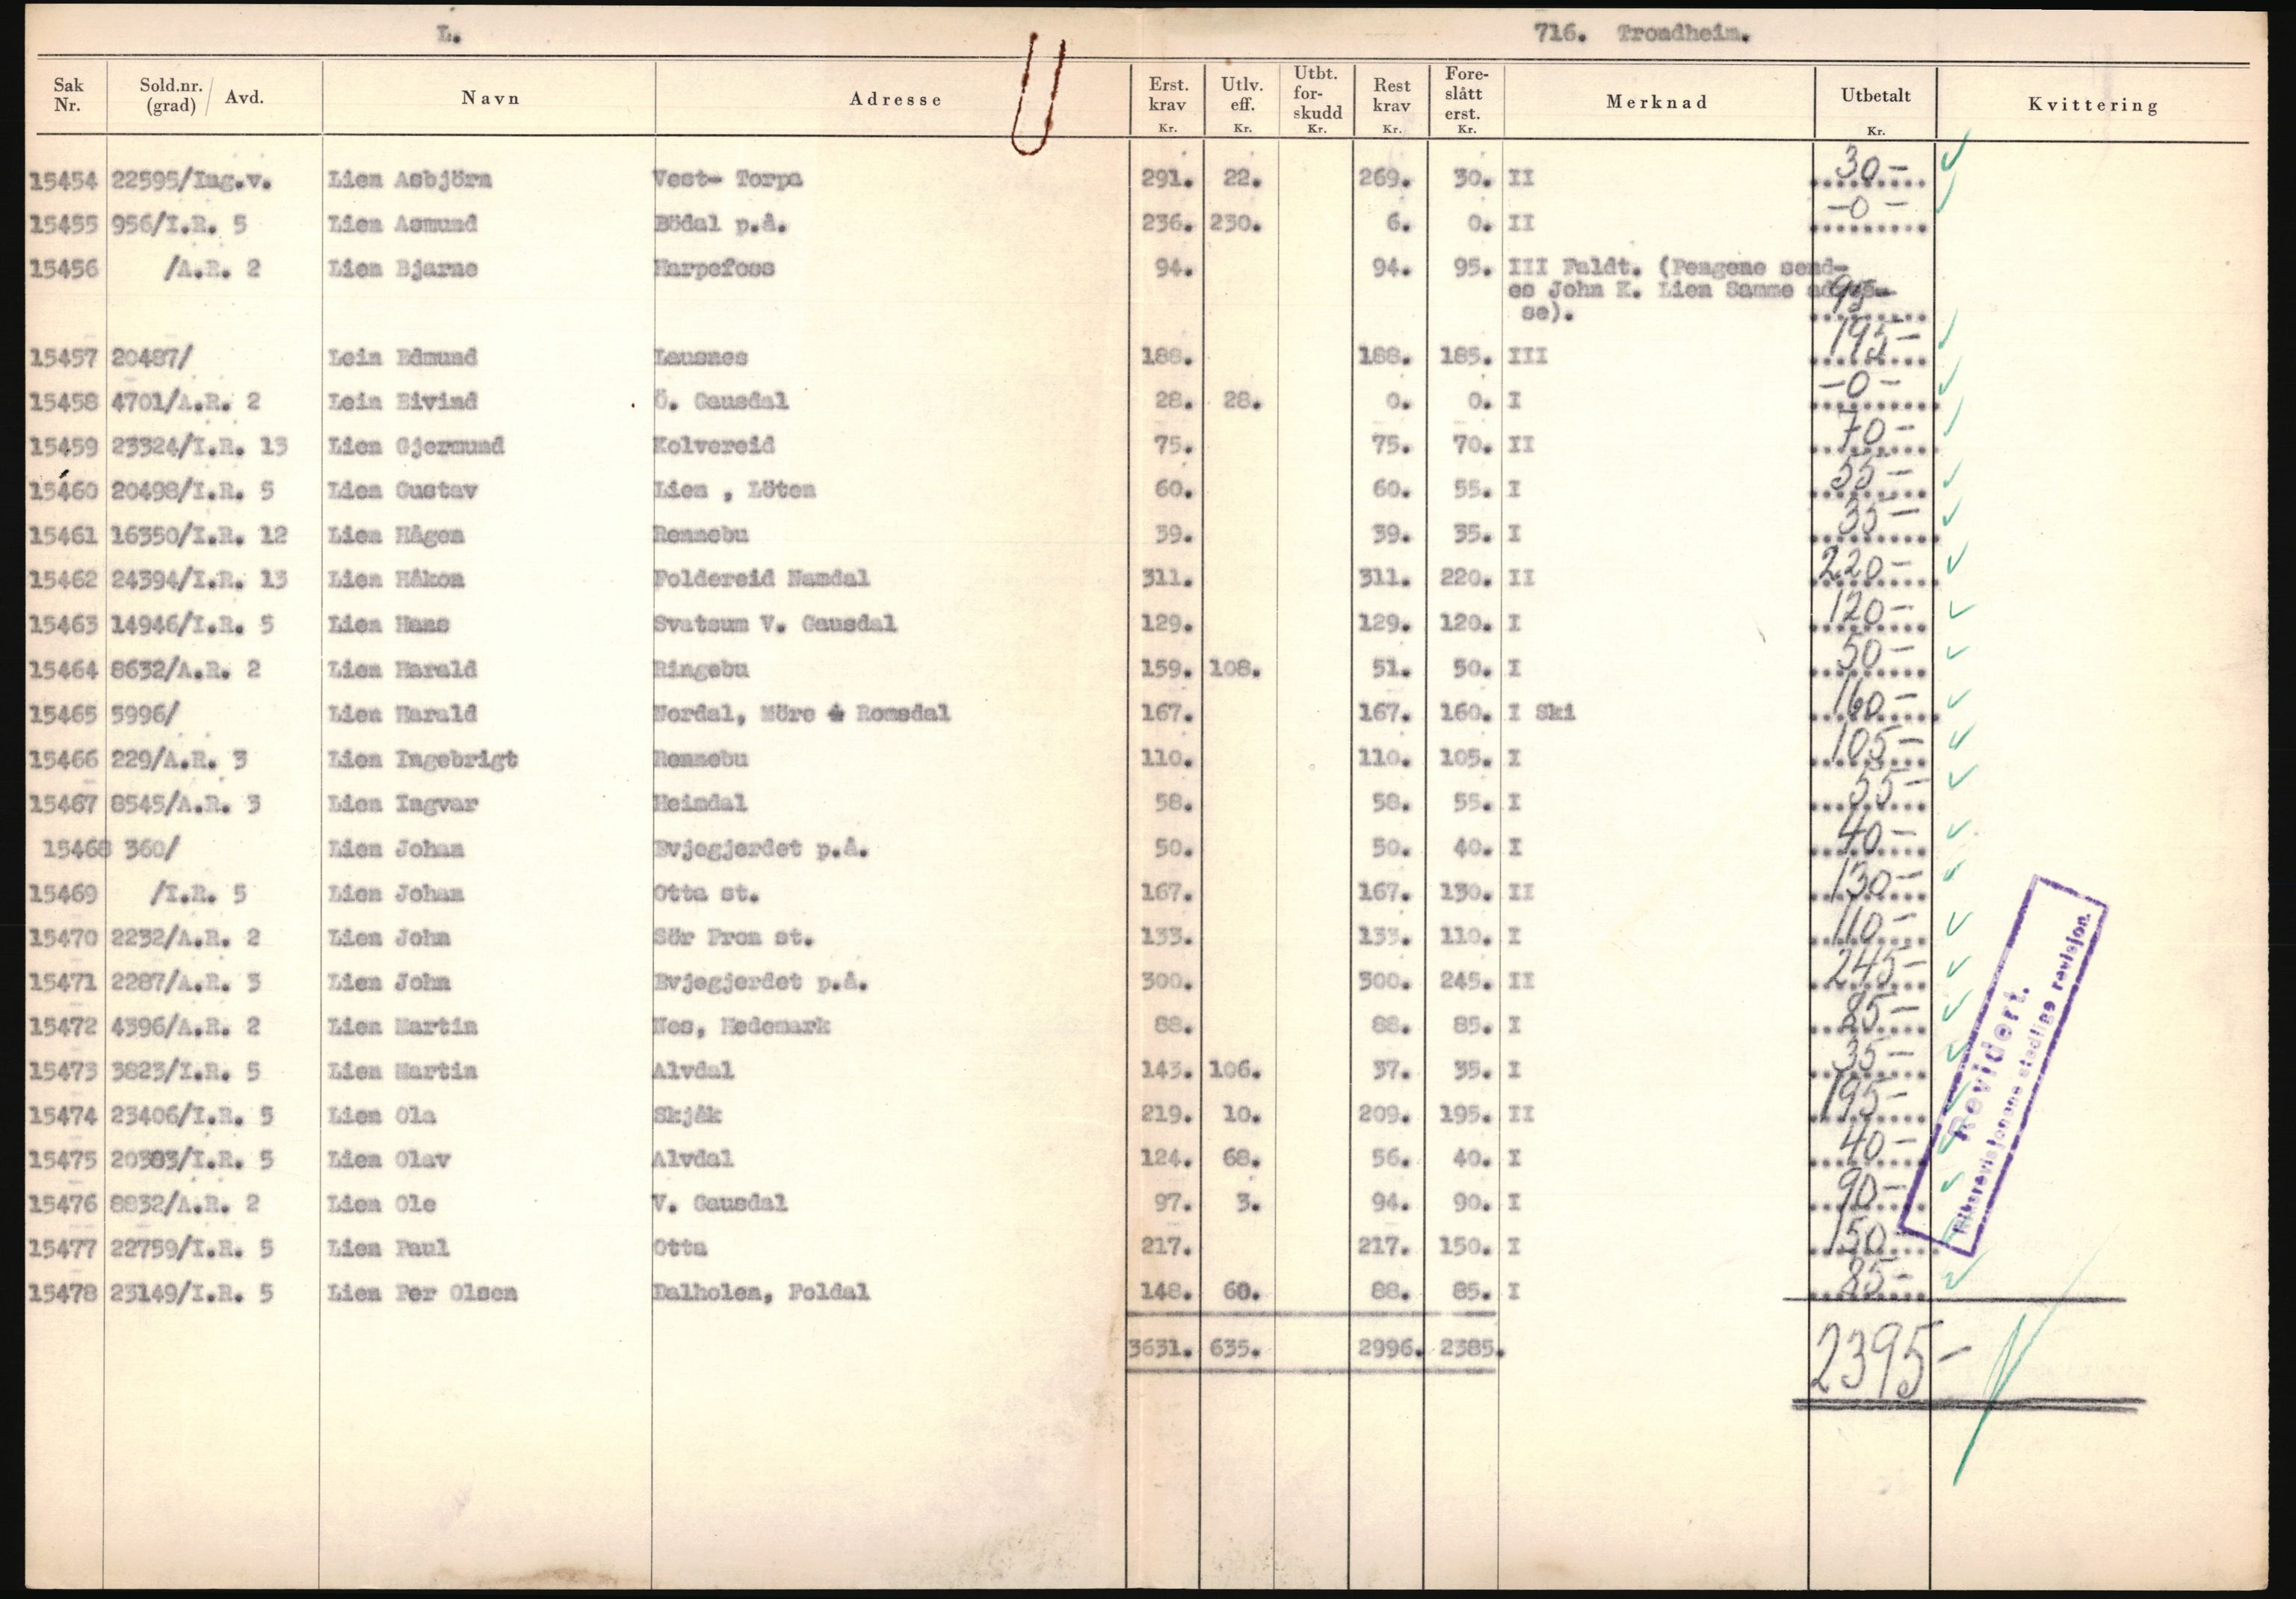 L.
716. Trondheim.
Sak Nr. Sold.nr. (grad) / Avd. Navn Adresse Erst. krav Kr. Utlv. eff. Kr. Utbt. for- skudd Kr. Rest krav Kr. Fore- slått erst. Kr. Merknad Utbetalt Kr. Kvittering
15454 22595/Ing.v. Lien Asbjörn Vest- Torpa 291. 22. 269. 30. II 30-
15455 956/I.R. 5 Lien Asmund Bödal p.å. 236. 230. 6. 0. II -0-
15456 /A.R. 2 Lien Bjarne Harpefoss 94. 94. 95. III Faldt. (Pengene send-
es John K. Lien Samme adres- 95-
se).
15457 20487/ Lein Edmund Lausnes 188. 188. 185. III 195-
15458 4701/A.R. 2 Lein Eivind Ö. Gausdal 28. 28. 0. 0. I -0-
15459 23324/I.R. 13 Lien Gjermund Kolvereid 75. 75. 70. II 70-
15460 20498/I.R. 5 Lien Gustav Lien , Löten 60. 60. 55. I 55-
15461 16350/I.R. 12 Lien Hågen Rennebu 39. 39. 35. I 35-
15462 24394/I.R. 13 Lien Håkon Foldereid Namdal 311. 311. 220. II 220-
15463 14946/I.R. 5 Lien Hans Svatsum V. Gausdal 129. 129. 120. I 120-
15464 8632/A.R. 2 Lien Harald Ringebu 159. 108. 51. 50. I 50-
15465 5996/ Lien Harald Nordal, Möre & Romsdal 167. 167. 160. I Ski 160-
15466 229/A.R. 3 Lien Ingebrigt Rennebu 110. 110. 105. I 105-
15467 8545/A.R. 3 Lien Ingvar Heimdal 58. 58. 55. I 55-
15468 360/ Lien Johan Evjegjerdet p.å. 50. 50. 40. I 40-
15469 /I.R. 5 Lien Johan Otta st. 167. 167. 130. II 130-
15470 2232/A.R. 2 Lien John Sör Fron st. 133. 133. 110. I 110-
15471 2287/A.R. 3 Lien John Evjegjerdet p.å. 300. 300. 245. II 245-
15472 4396/A.R. 2 Lien Martin Nes, Hedemark 88. 88. 85. I 85-
15473 3823/I.R. 5 Lien Martin Alvdal 143. 106. 37. 35. I 35-
15474 23406/I.R. 5 Lien Ola Skjåk 219. 10. 209. 195. II 195-
15475 20303/I.R. 5 Lien Olav Alvdal 124. 68. 56. 40. I 40-
15476 8832/A.R. 2 Lien Ole V. Gausdal 97. 3. 94. 90. I 90-
15477 22759/I.R. 5 Lien Paul Otta 217. 217. 150. I 150-
15478 23149/I.R. 5 Lien Per Olsen Dalholen, Foldal 148. 60. 88. 85. I 85-
3631. 635. 2996. 2385. 2395-
Revidert.
Riksrevisjonens stedlige revisjon.